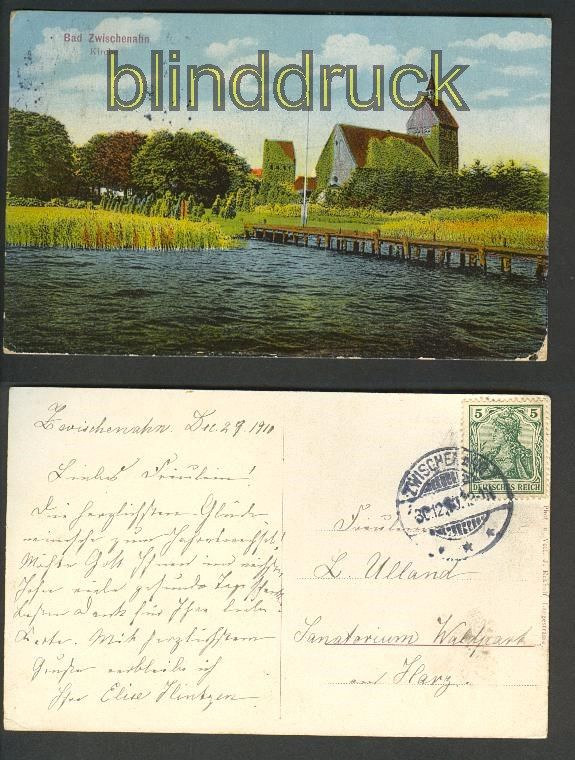 Bad Zwischenahn
Kirche
blinddruck
Zwischenahn. Dec. 29. 1910
Liebes Fräulein!
Die herzlichsten Glück-
wünsche zum Jahreswechsel!
Möchte Gott Ihnen im nächsten
Jahr viele gesunde Tage schenken.
Besten Dank für Ihre liebe
Karte. Mit herzlichsten
Grüßen verbleibe ich
Ihre Elise Hintzen
5 5
DEUTSCHES REICH
ZWISCHENAHN
30.12.10
Fräulein
L. Ulland
Sanatorium Waldpark
am Harz.